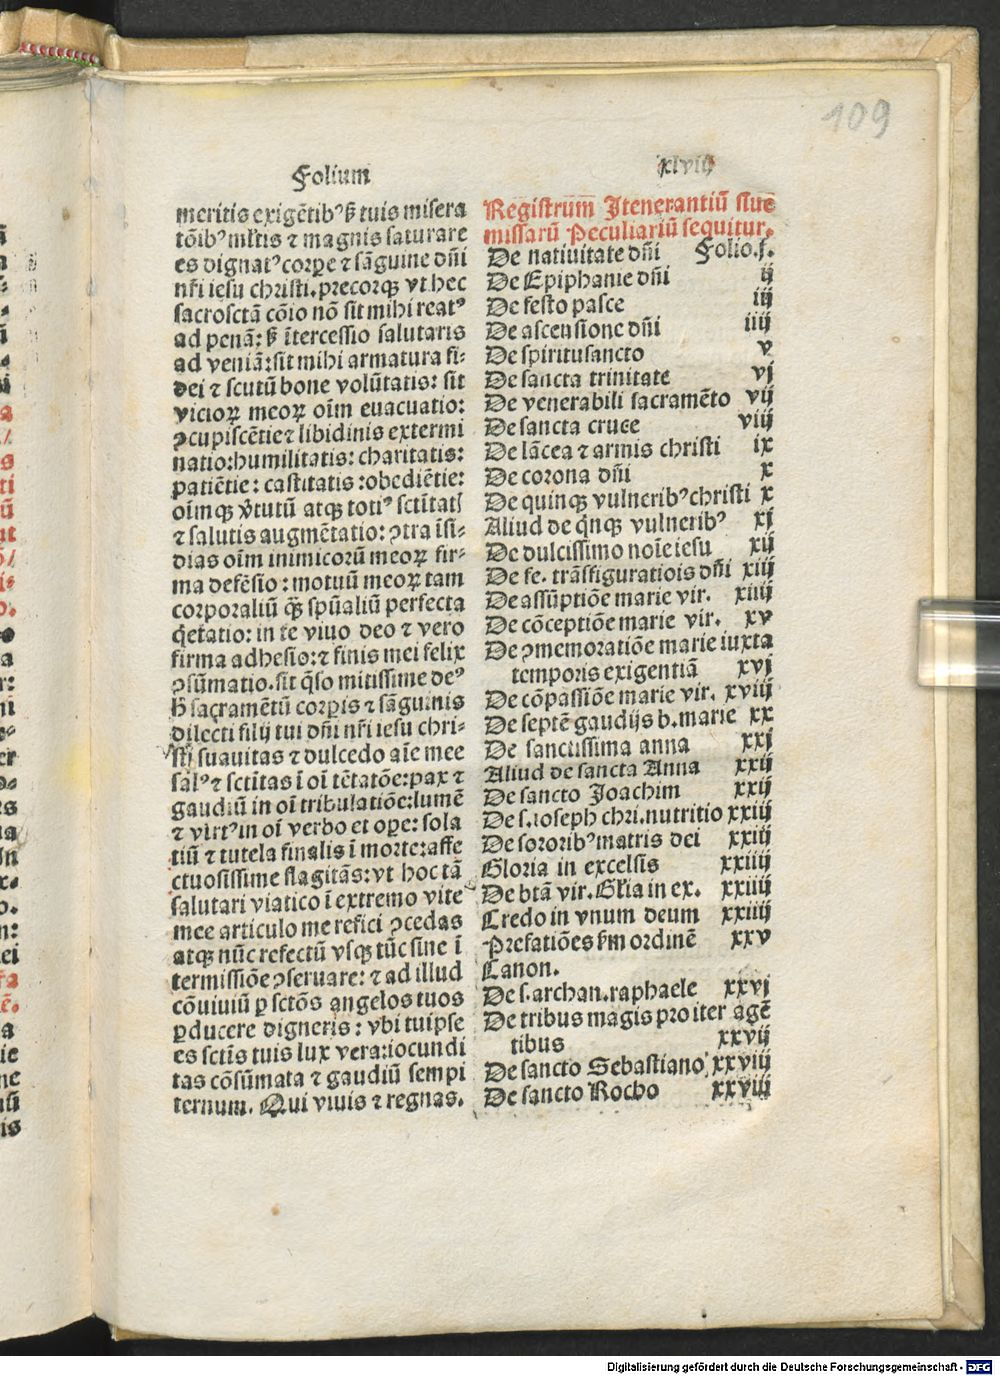 109
Folium
xlviij
meritis exigētibꝰ ꝫ tuis misera
tōibꝰ ml̄tis ⁊ magnis saturare
es dignatꝰ corpe ⁊ sāguine dn̄i
nr̄i iesu christi. precorqꝫ vt hec
sacrosctā cōio nō sit mihi reatꝰ
ad penā: ꝫ ītercessio salutaris
ad veniā: sit mihi armatura fi-
dei ⁊ scutū bone volūtatis: sit
vicioꝝ meoꝝ oīm euacuatio:
ꝯcupiscētie ⁊ libidinis extermi
natio: humilitatis: charitatis:
patiētie: castitatis: obediētie:
oīmqꝫ v̄tutū atqꝫ totiꝰ sctītatꝭ
⁊ salutis augmētatio: ꝯtra īsi-
dias oīm inimicorū meoꝝ fir-
ma defēsio: motuū meoꝝ tam
corporaliū qꝫ sp̄ūaliū perfecta
q̄etatio: in te viuo deo ⁊ vero
firma adhesio: ⁊ finis mei felix
ꝯsūmatio. sit q̄so mitissime deꝰ
h̄ sacramētū corpis ⁊ sāguinis
dilecti filij tui dn̄i nr̄i iesu chri-
sti suauitas ⁊ dulcedo aīe mee
salꝰ ⁊ sctītas ī oī tētatōe: pax ⁊
gaudiū in oī tribulatiōe: lumē
⁊ virtꝰ in oī verbo et ope: sola
tiū ⁊ tutela finalis ī morte: affe
ctuosissime flagitās: vt hoc tā
salutari viatico ī extremo vite
mee articulo me refici ꝯcedas
atqꝫ nūc refectū vsqꝫ tūc sine ī
termissiōe ꝯseruare: ⁊ ad illud
cōuiuiū ꝑ sctōs angelos tuos
ꝑducere digneris: vbi tu ipse
es sctīs tuis lux vera: iocundi
tas cōsūmata ⁊ gaudiū sempi
ternum. Qui viuis ⁊ regnas.
Registrum̄ Itenerantiū siue
missarū Peculiariū sequitur.
De natiuitate dn̄i Folio.j.
De Epiphanie dn̄i ij
De festo pasce iij
De ascensione dn̄i iiij
De spiritusancto v
De sancta trinitate vj
De venerabili sacramēto vij
De sancta cruce viij
De lācea ⁊ armis christi ix
De corona dn̄i x
De quinqꝫ vulneribꝰ christi x
Aliud de qͥnqꝫ vulneribꝰ xj
De dulcissimo noīe iesu xij
De fe. trāsfiguratiois dn̄i xiij
De assūptiōe marie vir. xiiij
De cōceptiōe marie vir. xv
De ꝯmemoratiōe marie iuxta
temporis exigentiā xvj
De cōpassiōe marie vir. xviij
De septē gaudijs b. marie xx
De sanctissima anna xxj
Aliud de sancta Anna xxij
De sancto Joachim xxij
De s. ioseph chri. nutritio xxiij
De sororibꝰ matris dei xxiij
Gloria in excelsis xxiiij
De btā vir. Gl̄ia in ex. xxiiij
Credo in vnum deum xxiiij
Prefatiōes ſm ordinē xxv
Canon.
De s. archan. raphaele xxvj
De tribus magis pro iter agē
tibus xxvij
De sancto Sebastiano xxviij
De sancto Rocho xxviij
Digitalisierung gefördert durch die Deutsche Forschungsgemeinschaft - DFG